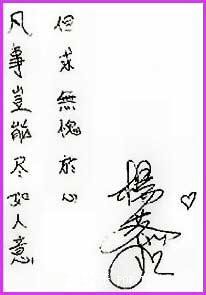 凡事豈能尽如人意
但求無愧於心
楊